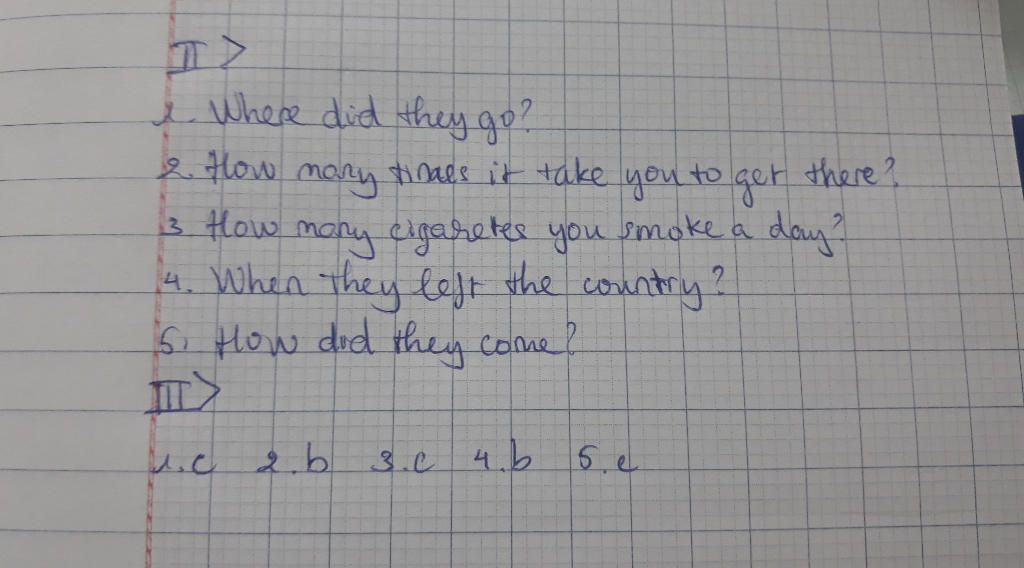 II >
1. Where did they go?
2. How many times it take you to get there?
3 How many cigaretes you smoke a day?
4. When they left the country?
5. How did they come?
III >
1. c 2. b 3. c 4. b 5. c